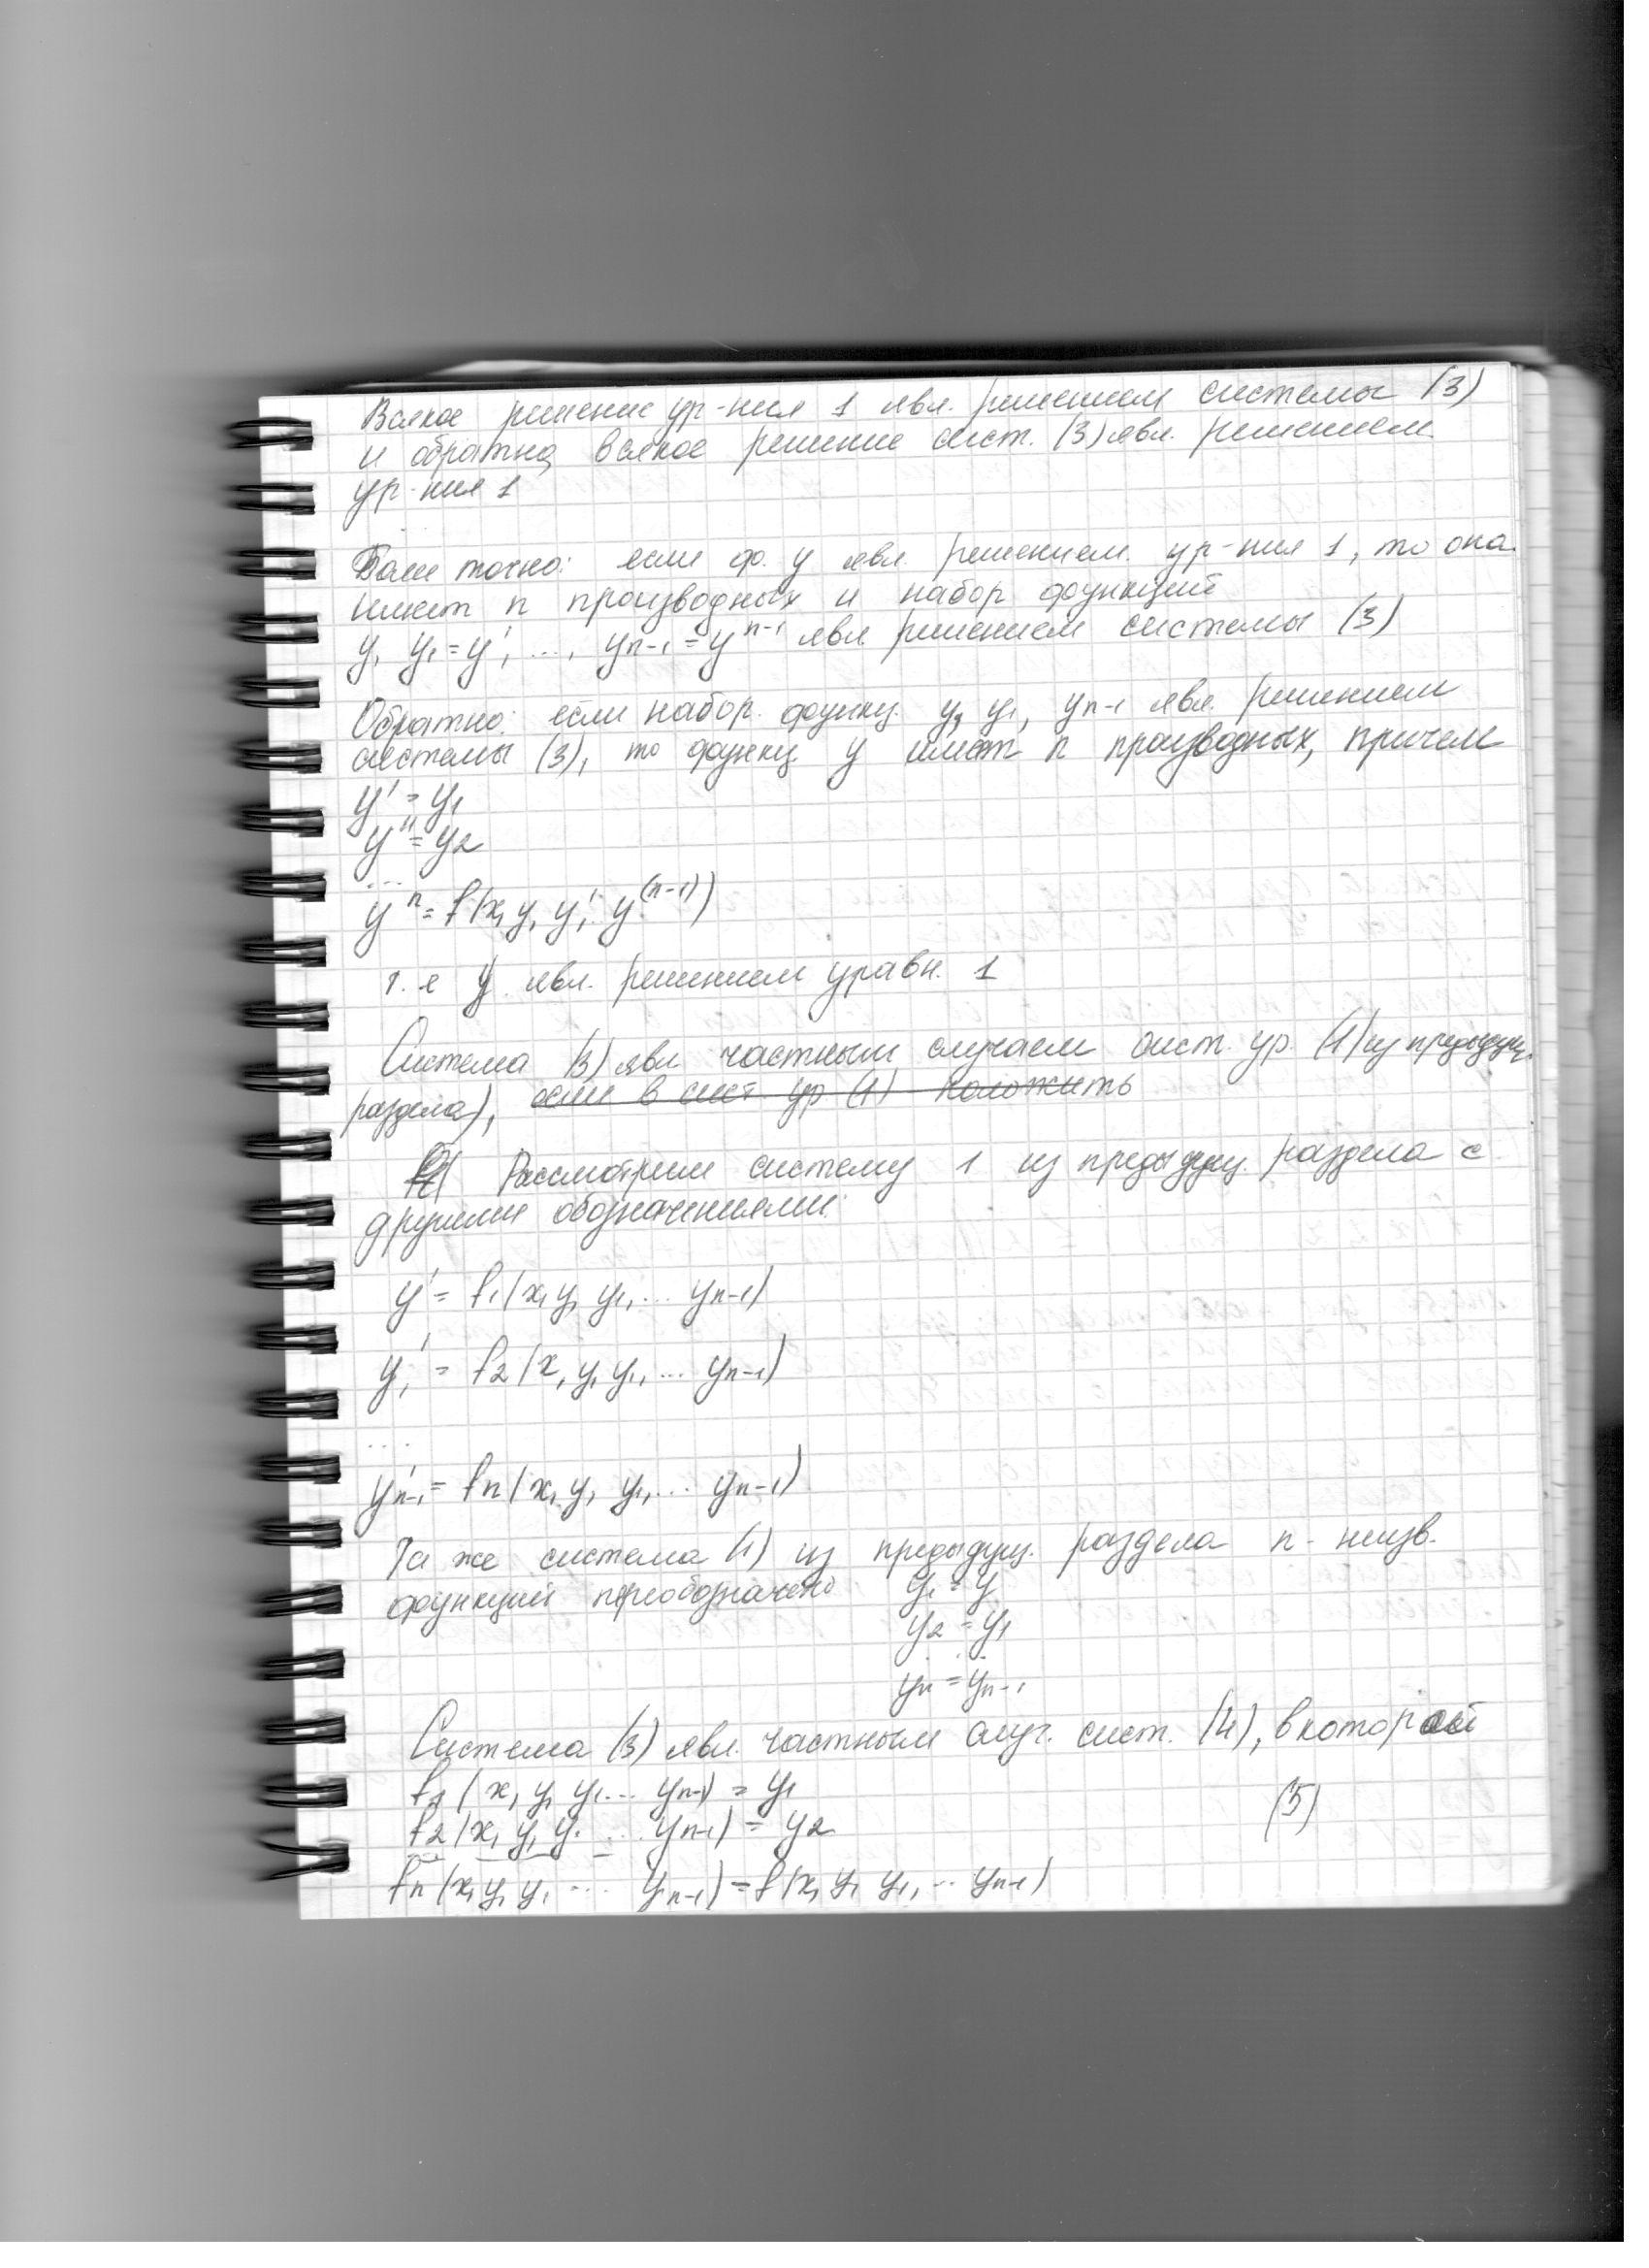 Всякое решение ур-ния 1 явл. решением системы (3)
и обратно, всякое решение сист. (3) явл. решением
ур-ния 1
Более точно: если ф. y явл. решением ур-ния 1, то она
имеет n производных и набор функций
y, y₁ = y', ..., yₙ₋₁ = yⁿ⁻¹ явл решением системы (3)
Обратно: если набор. функц. y, y₁, yₙ₋₁ явл. решением
системы (3), то функц y имеет n производных, причем
y' = y₁
y'' = y₂
...
yⁿ = f(x, y, y', y⁽ⁿ⁻¹⁾)
т. е y явл. решением уравн. 1
Система (3) явл частным случаем сист. ур. (1) из предыдущ.
раздела), если в сист ур (1) положить
Рассмотрим систему 1 из предыдущ. раздела с
другими обозначениями:
y' = f₁(x, y, y₁, ... yₙ₋₁)
y₁' = f₂(x, y, y₁, ... yₙ₋₁)
....
y'ₙ₋₁ = fₙ(x, y, y₁, ... yₙ₋₁)
Та же система (1) из предыдущ. раздела n - неизв.
функций переобозначено y₁ = y
y₂ = y₁
. . .
yₙ = yₙ₋₁
Система (3) явл. частным случ. сист. (4), в которой
f₁(x, y, y₁ ... yₙ₋₁) = y₁
(5)
f₂(x, y, y₁ ... yₙ₋₁) = y₂
fₙ(x, y, y₁ ... yₙ₋₁) = f(x, y, y₁, ... yₙ₋₁)